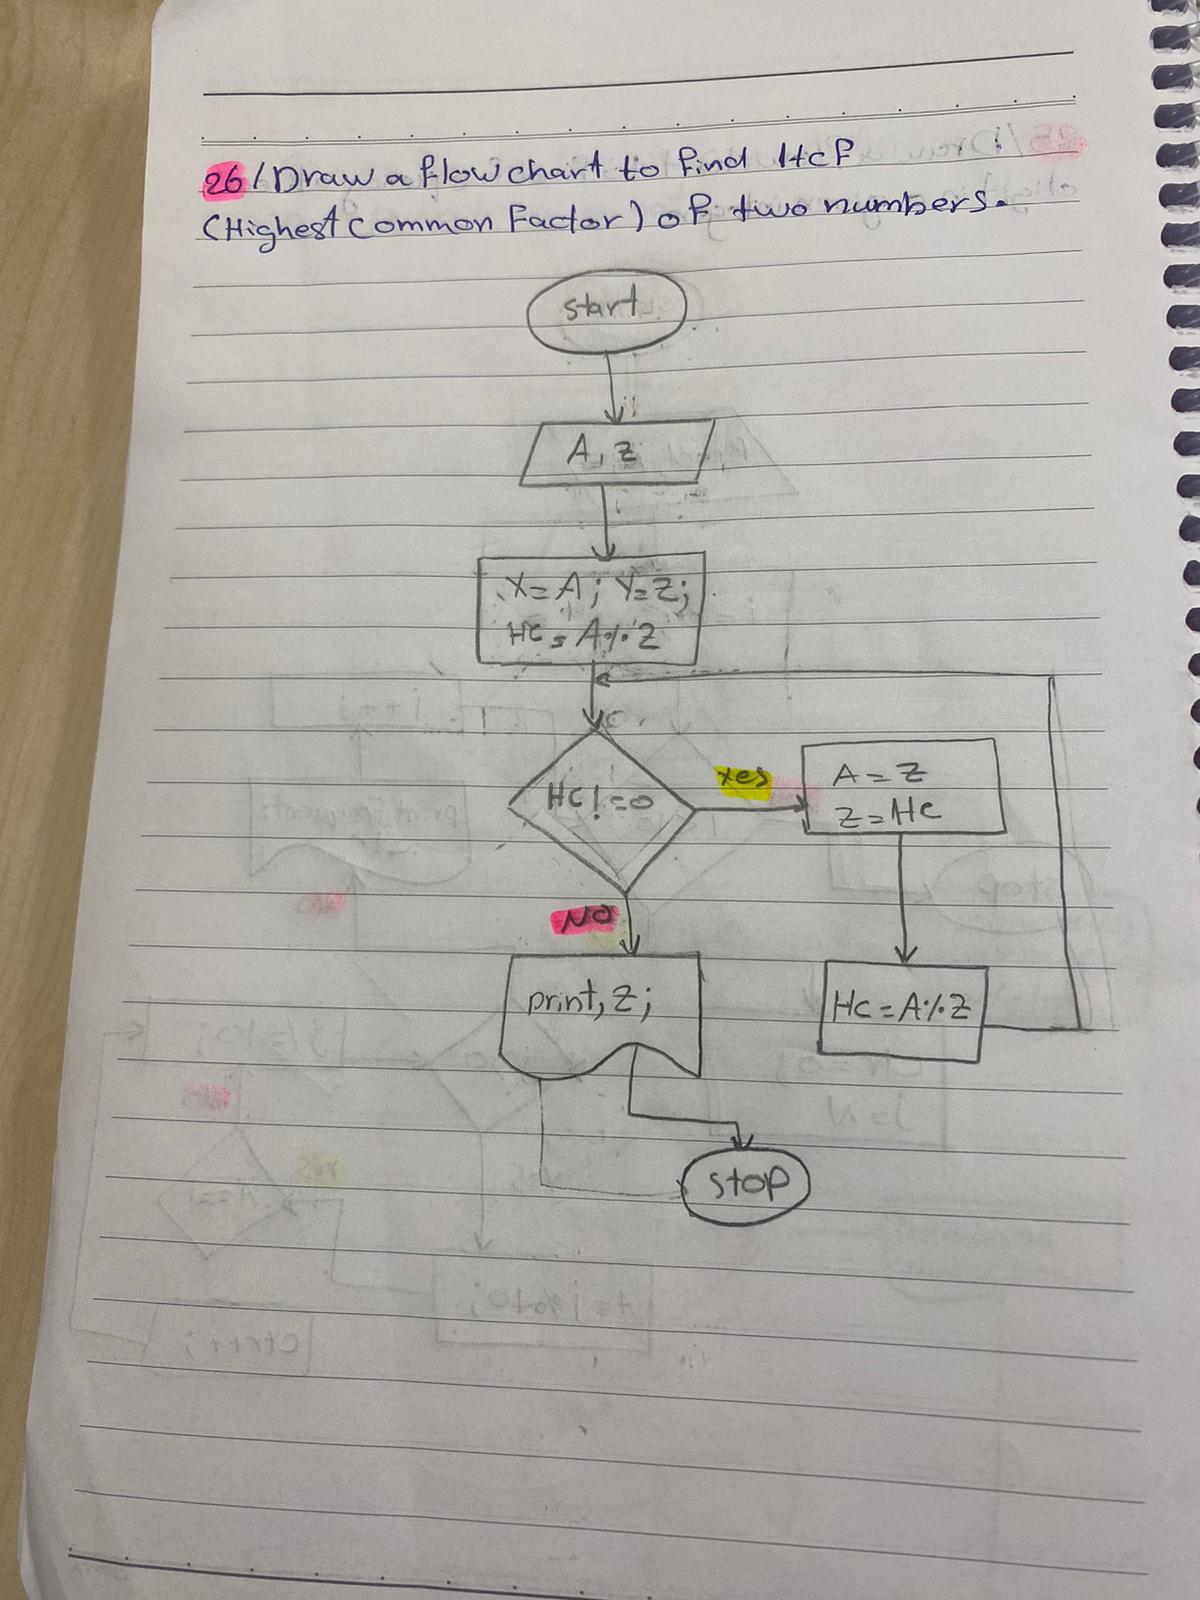 26/Draw a flow chart to find HcF
(Highest Common Factor) of two numbers.
start
A, Z
X=A; Y=Z;
HC=A%Z
HC!=0
yes
A=Z
Z=HC
NO
print, Z;
HC=A%Z
stop